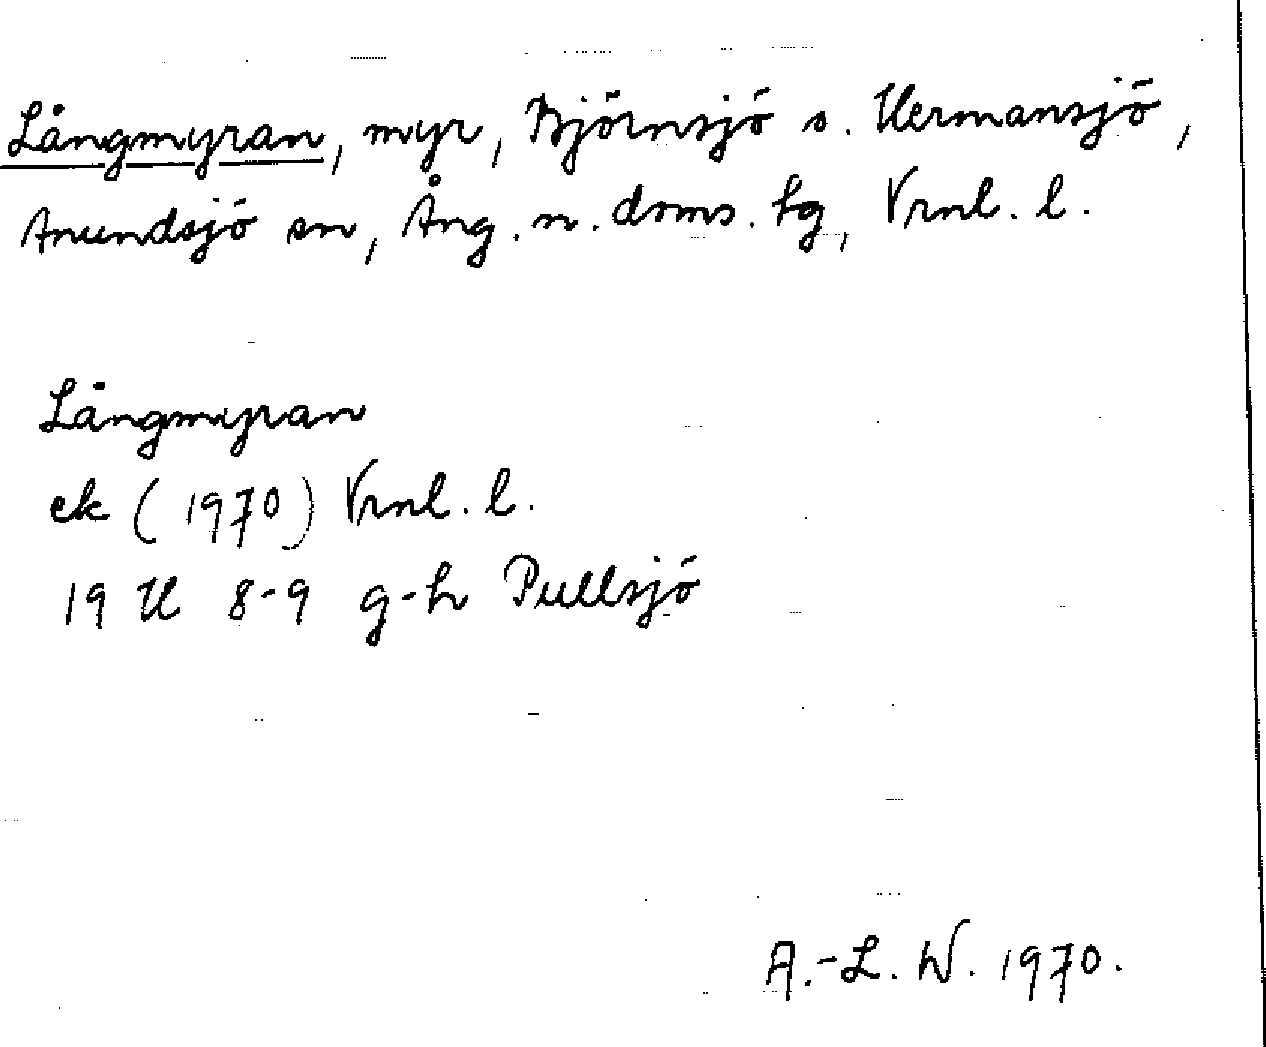 Långmyran, myr, Björnsjö o. Hermansjö,
Anundsjö sn, Ång. n. doms. hg, Vrnl. l.
Långmyran
ek (1970) Vrnl. l.
19 H 8-9 g-h Pullsjö
A.-L. W. 1970.